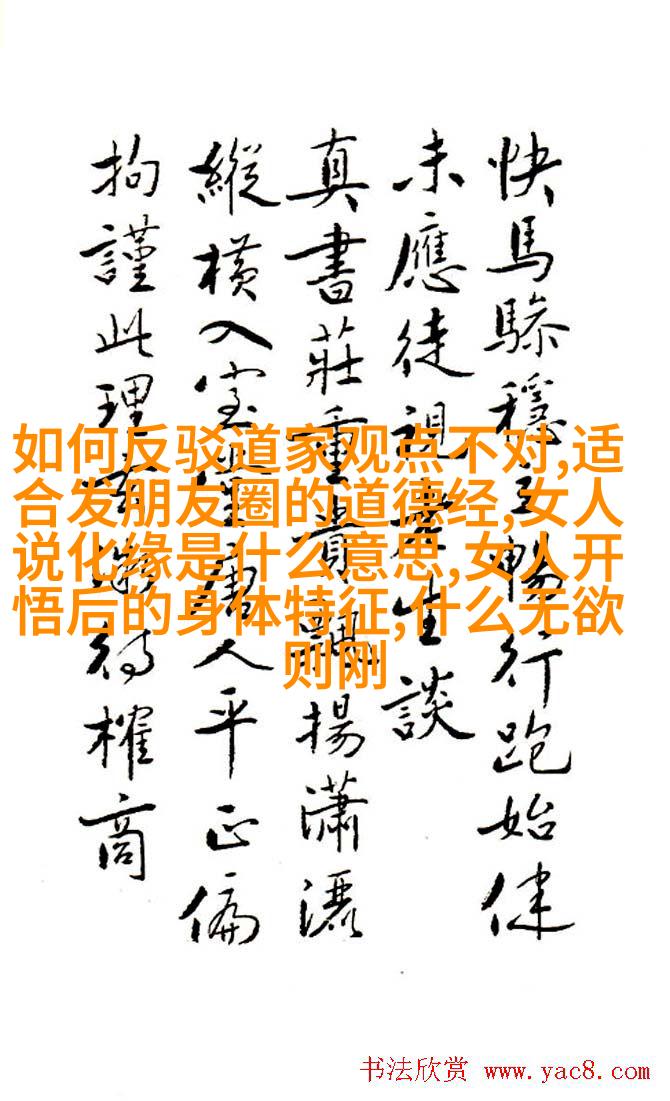 快馬驂穩
行跑始健
未應徒
生談
真書莊重
飄揚瀟灑
縱橫入室
唐人平正偏
拘謹此理
得榷商
如何反驳道家观点不对,适
合发朋友圈的道德经,女人
说化缘是什么意思,女人开
悟后的身体特征,什么无欲
则刚
书法欣赏 www.yac8.com